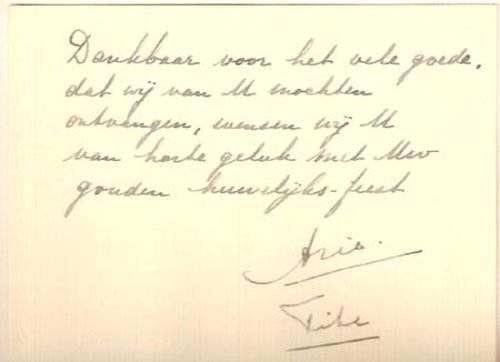 Dankbaar voor het vele goede,
dat wij van U mochten
ontvangen, wensen wij U
van harte geluk met Uw
gouden huwelijks-feest
Arie.